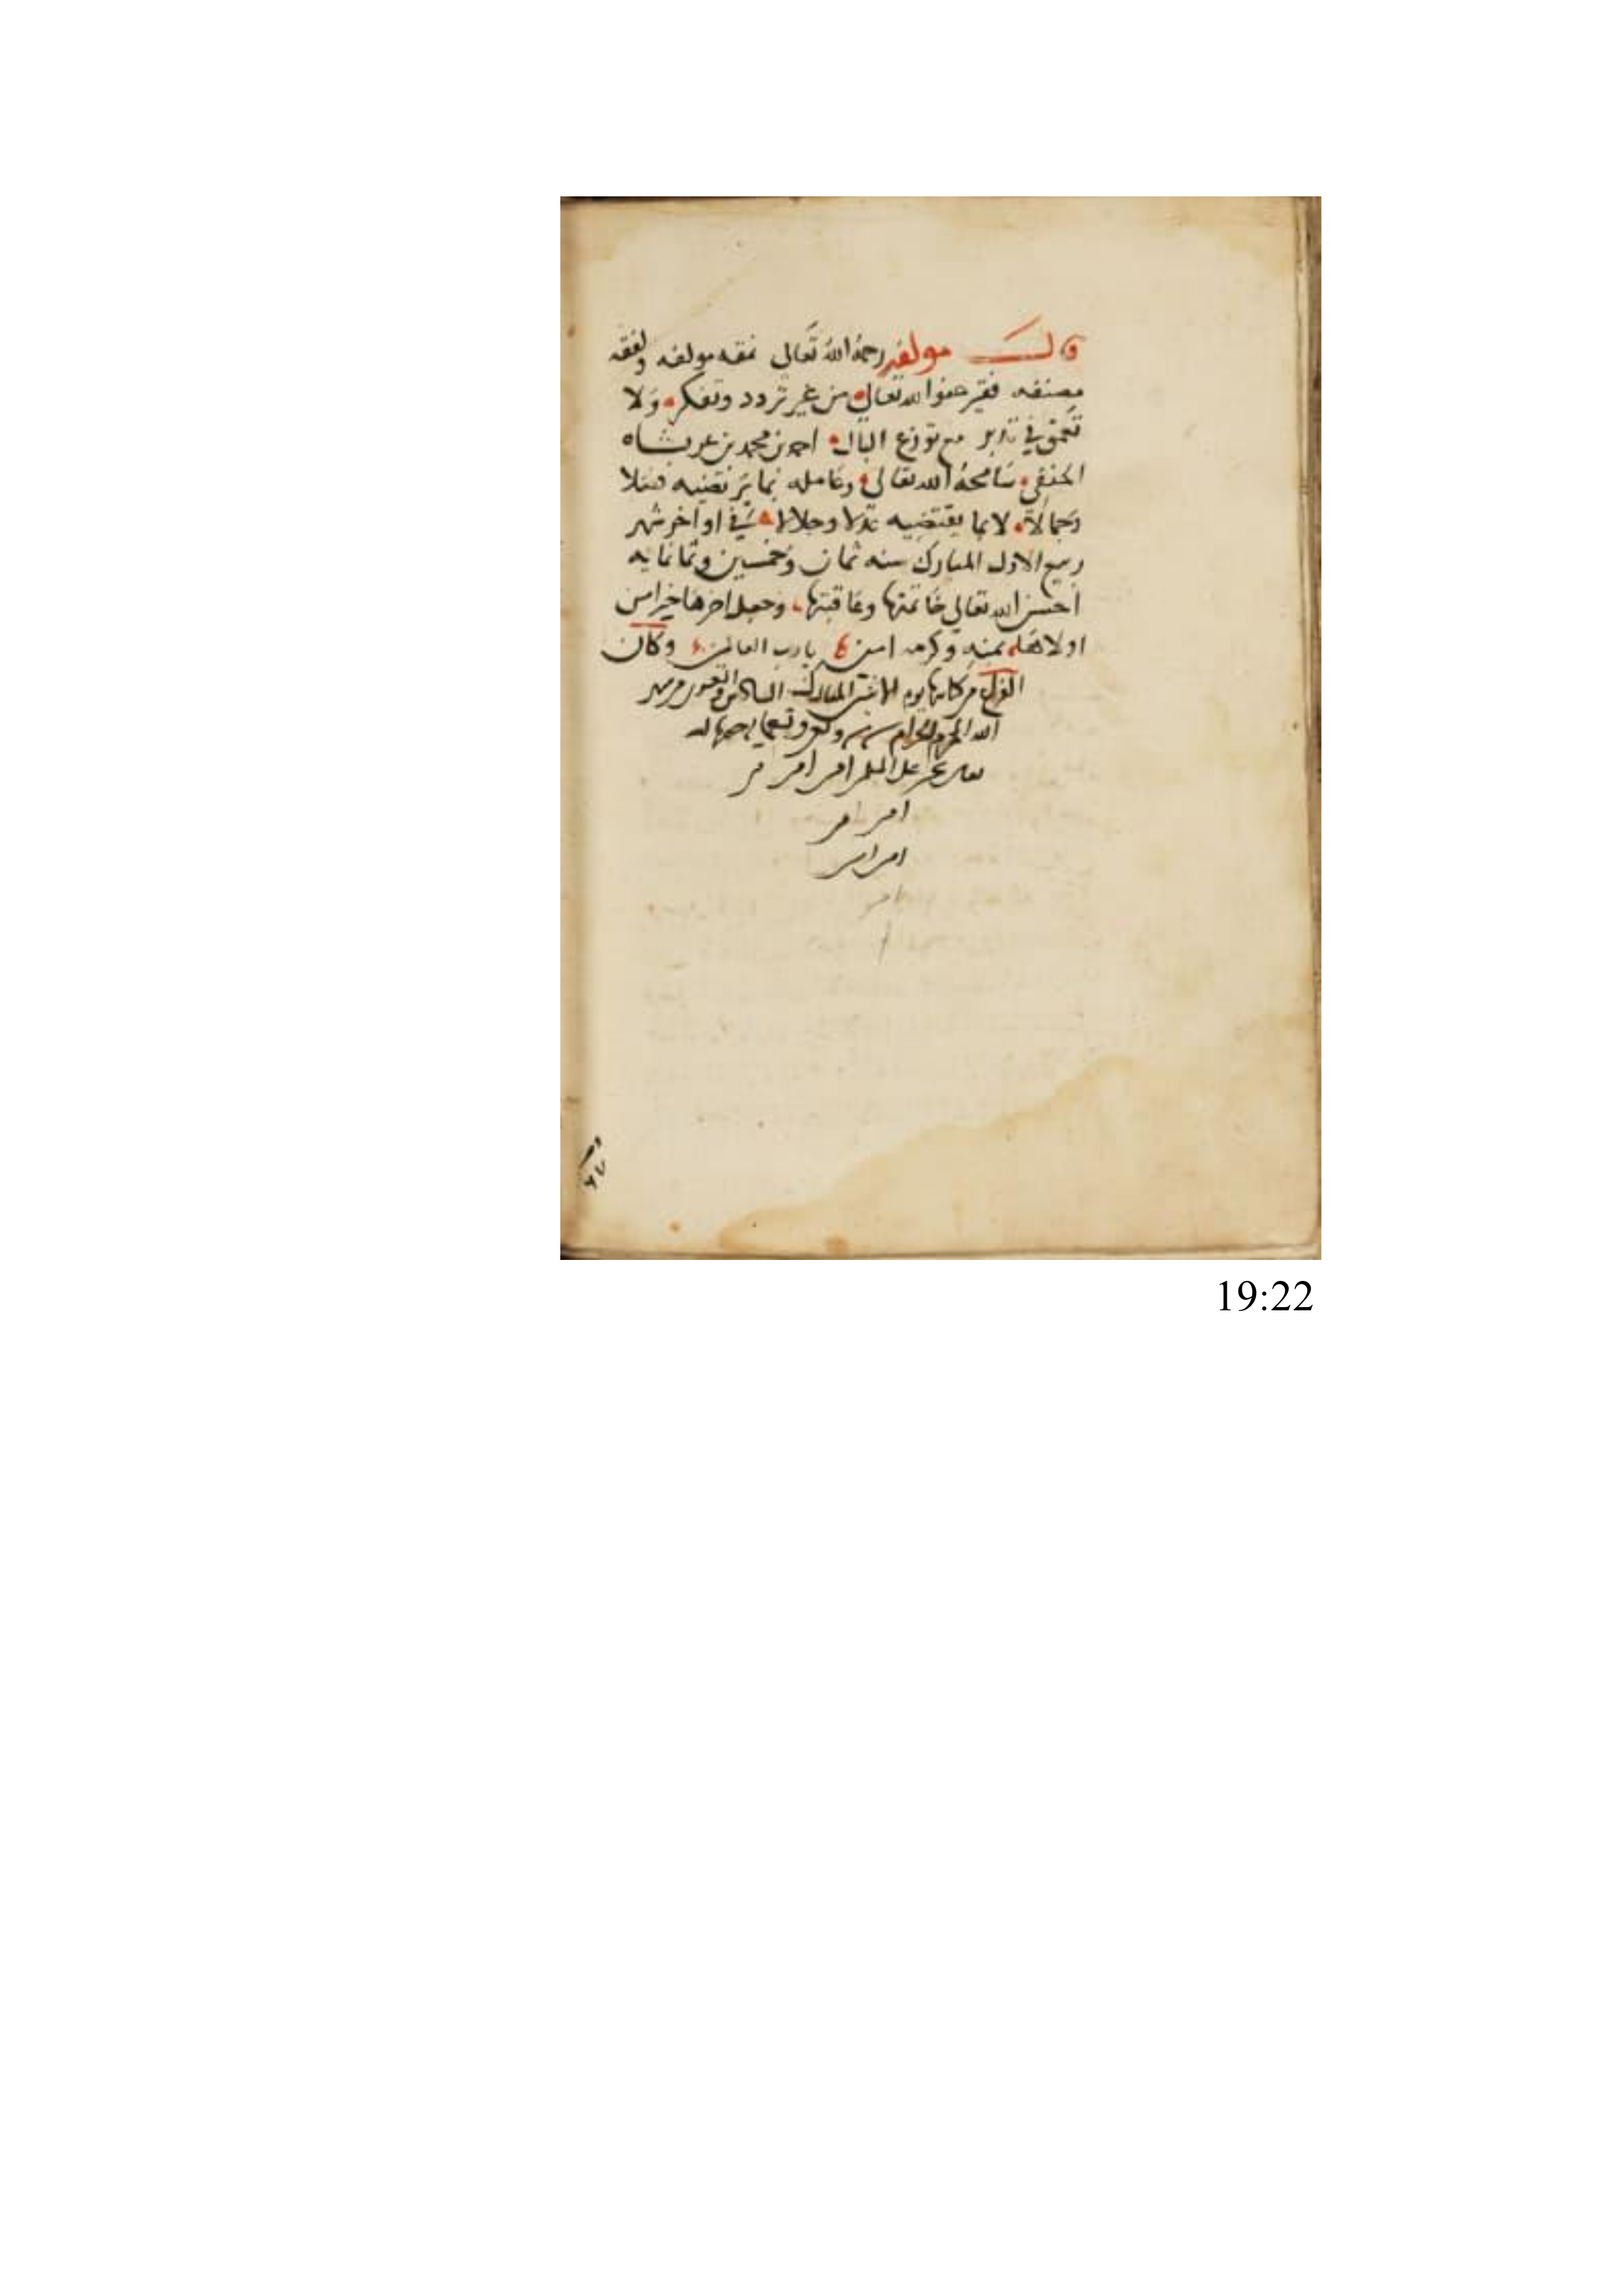 قال مولفه رحمه الله تعالى نمقه مولفه ولفقه
مصنفه فقير عفو الله تعالى من غير تردد وتفكر ولا
تعمق في تدبر مع توزع البال احمد بن محمد بن عربشاه
الحنفي سامحه الله تعالى وعامله بما يرتضيه فضلا
وجمالا لا بما يقتضيه عدلا وجلالا في اواخر شهر
ربيع الاول المبارك سنه ثمان وخمسين وثمانمايه
احسن الله تعالى خاتمتها وعاقبتها وجعل اخرها خيرا من
اولاها بمنه وكرمه امين يا رب العالمين وكان
الفراغ من كتابتها يوم المبارك السادس والعشرون من شهر
الله المحرم الحرام سنة
على امين امين
امين امين
امين امين
19:22